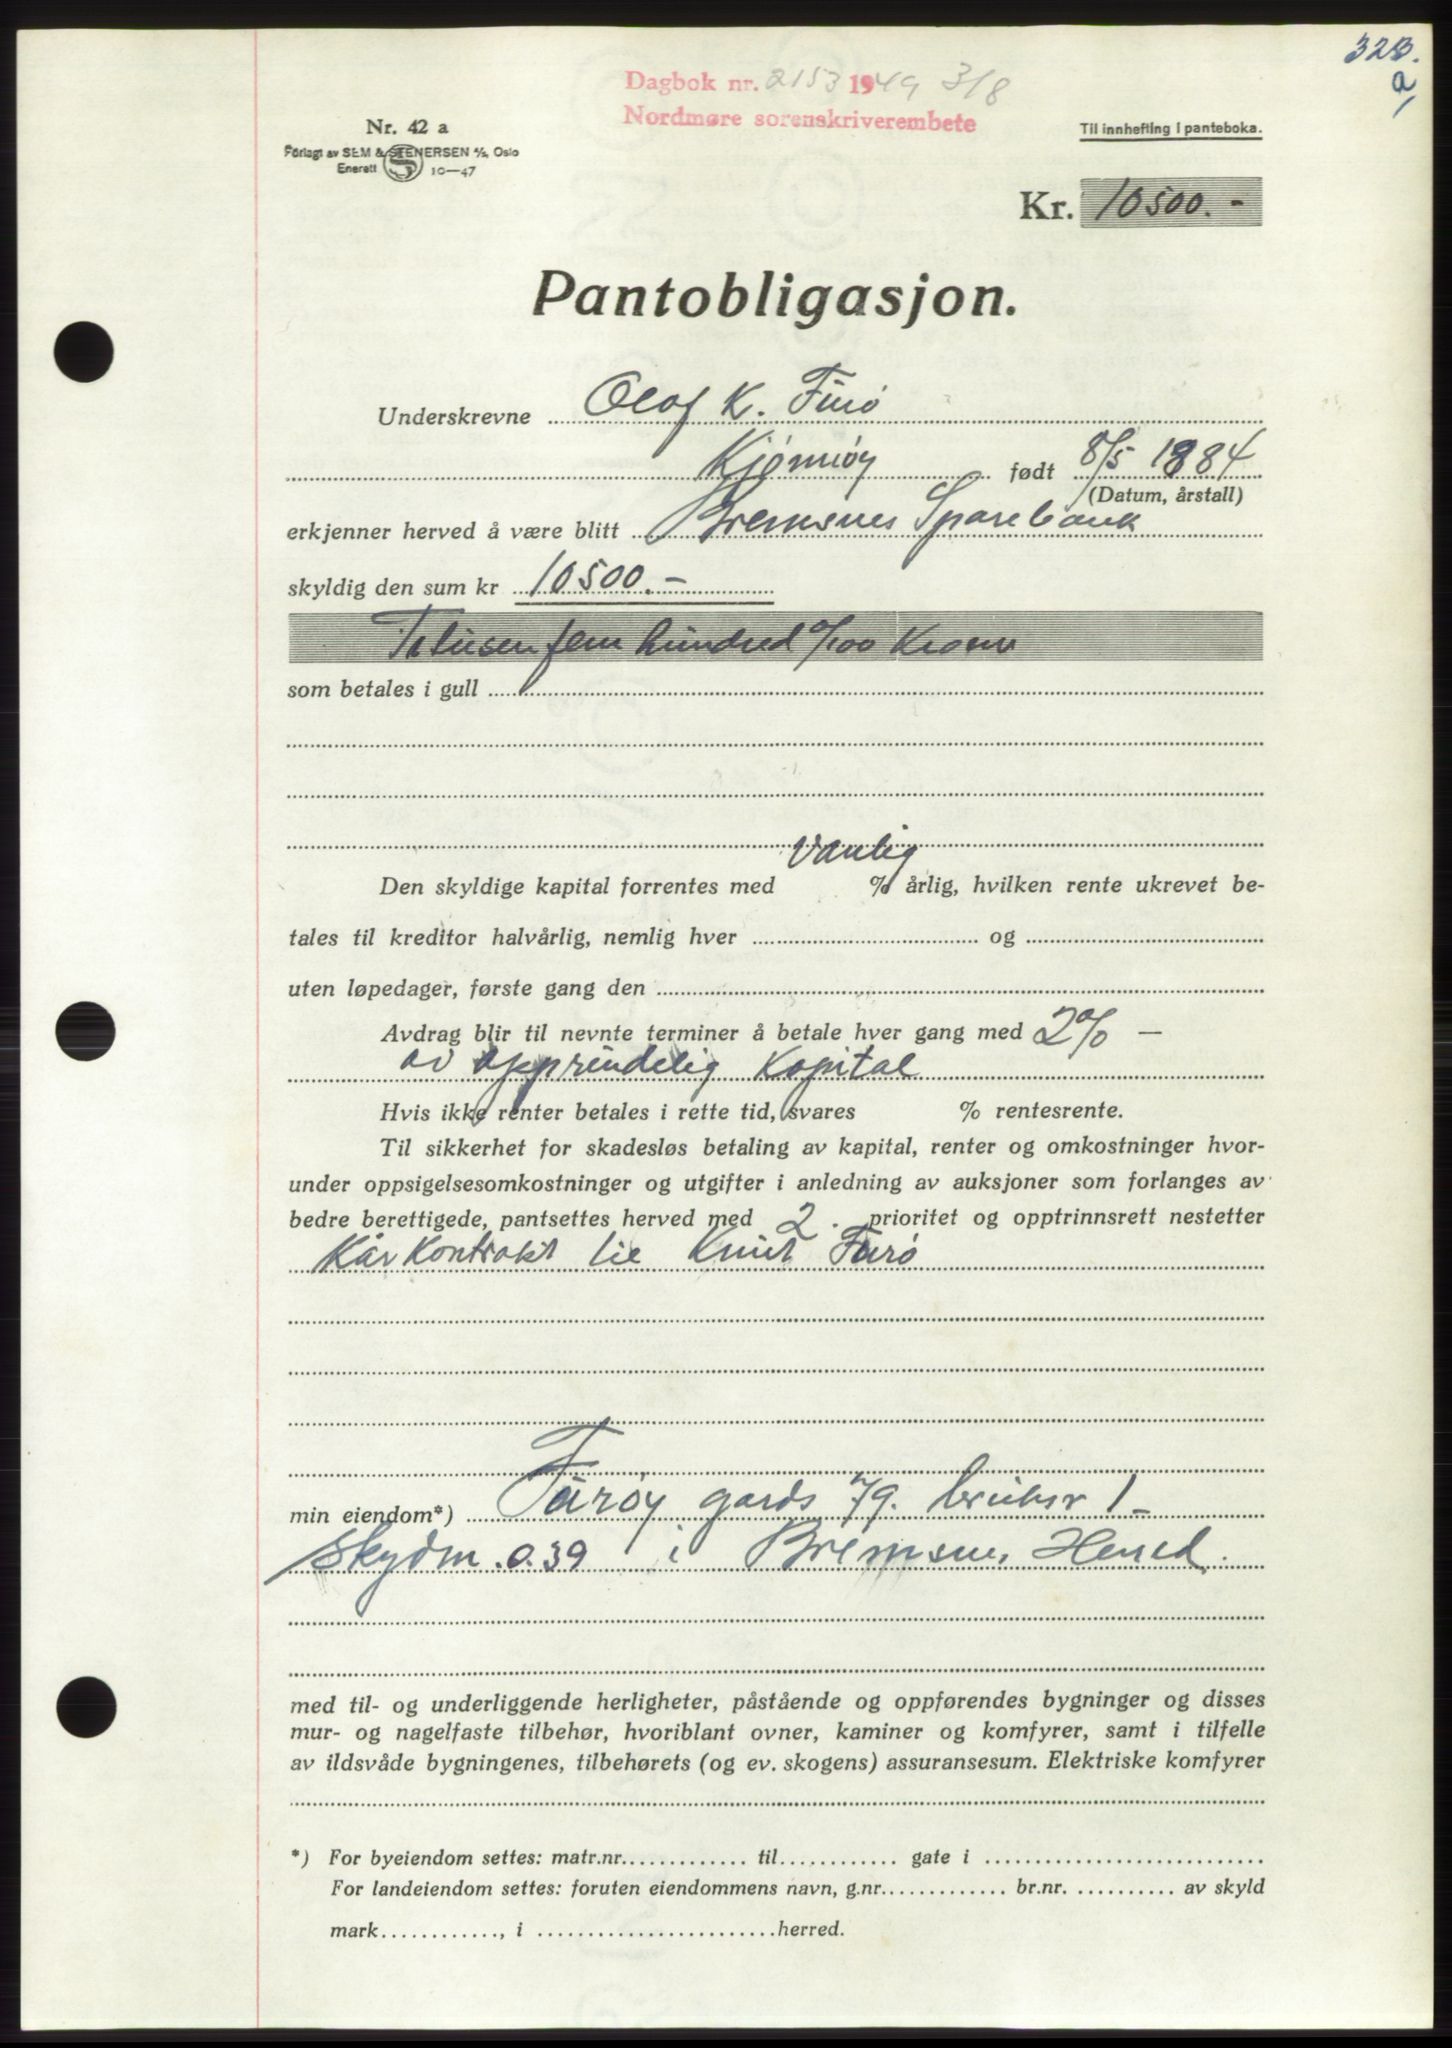 323.
a/
Dagbok nr. 2153 1949 3/8
Nordmøre sorenskriverembete
Nr. 42 a
Forlagt av SEM & STENERSEN A/S, Oslo
Enerett 10—47
Til innhefting i panteboka.
Kr. 10500.-
Pantobligasjon.
Underskrevne Olaf K. Furø
født 8/5 1884
(Datum, årstall)
erkjenner herved å være blitt Bremsnes Sparebank
skyldig den sum kr 10500.-
Titusen fem hundred 0/100 Kroner
som betales i gull
Den skyldige kapital forrentes med vanlig % årlig, hvilken rente ukrevet be-
tales til kreditor halvårlig, nemlig hver og
uten løpedager, første gang den
Avdrag blir til nevnte terminer å betale hver gang med 2% —
av opprindelig Kapital
Hvis ikke renter betales i rette tid, svares % rentesrente.
Til sikkerhet for skadesløs betaling av kapital, renter og omkostninger hvor-
under oppsigelsesomkostninger og utgifter i anledning av auksjoner som forlanges av
bedre berettigede, pantsettes herved med 2. prioritet og opptrinnsrett nestetter
Kårkontrakt til Knut Furø
min eiendom*) Furøy gards 79. bruksnr 1 -
Skydm. 0.39 i Bremsnes Herred.
med til- og underliggende herligheter, påstående og oppførendes bygninger og disses
mur- og nagelfaste tilbehør, hvoriblant ovner, kaminer og komfyrer, samt i tilfelle
av ildsvåde bygningenes, tilbehørets (og ev. skogens) assuransesum. Elektriske komfyrer
*) For byeiendom settes: matr.nr. til gate i
For landeiendom settes: foruten eiendommens navn, g.nr. br.nr. av skyld
mark , i herred.